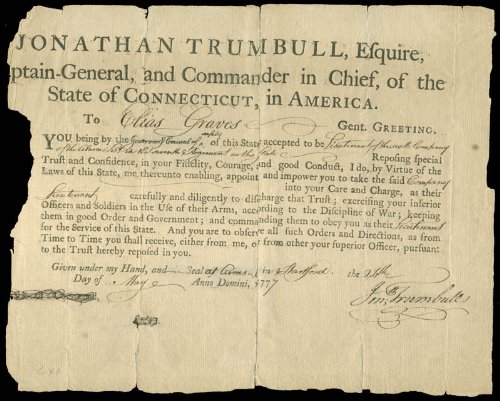 JONATHAN TRUMBULL, Esquire,
ptain-General, and Commander in Chief, of the
State of CONNECTICUT, in AMERICA.
To Elias Graves Gent. GREETING.
YOU being by the Governor & Council of of this State accepted to be Lieutenant of the Company
Regiment in the State Reposing special
Trust and Confidence, in your Fidelity, Courage, and good Conduct, I do, by Virtue of the
Laws of this State, me thereunto enabling, appoint and impower you to take the said Company
into your Care and Charge, as their
Lieutenant carefully and diligently to discharge that Trust; exercising your inferior
Officers and Soldiers in the Use of their Arms, according to the Discipline of War; keeping
them in good Order and Government; and commanding them to obey you as their Lieutenant
for the Service of this State. And you are to observe all such Orders and Directions, as from
Time to Time you shall receive, either from me, or from other your superior Officer, pursuant
to the Trust hereby reposed in you.
Given under my Hand, and Seal at Arms in Hartford the 28th
Day of May Anno Domini, 1777
Jonth Trumbull